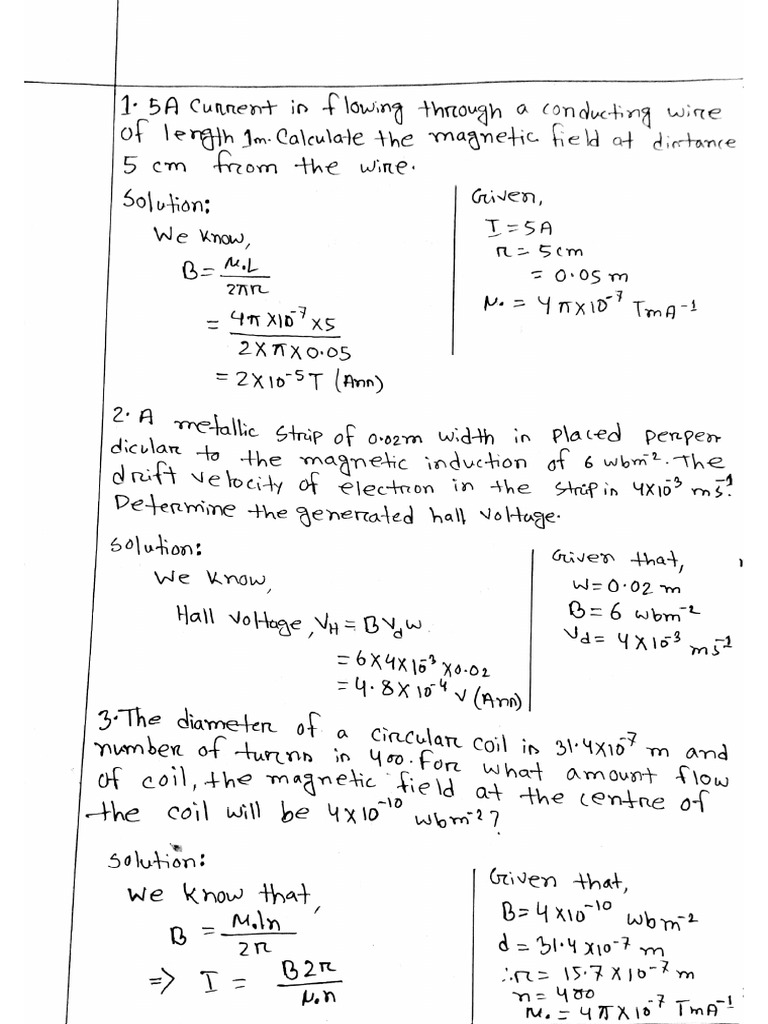 1. 5A Current is flowing through a conducting wire
of length 1m. Calculate the magnetic field at distance
5 cm from the wire.
Solution:
We know,
B = μ₀I / 2πr
= 4π×10⁻⁷×5 / 2×π×0.05
= 2×10⁻⁵T (Ans)
Given,
I = 5A
r = 5cm
= 0.05 m
μ₀ = 4π×10⁻⁷ TmA⁻¹
2. A metallic strip of 0.02m width is placed perpen
dicular to the magnetic induction of 6 wbm⁻². The
drift velocity of electron in the strip is 4×10⁻³ ms⁻¹.
Determine the generated hall voltage.
Solution:
We know,
Hall voltage, V_H = BV_dw
= 6×4×10⁻³×0.02
= 4.8×10⁻⁴ V (Ans)
Given that,
W = 0.02 m
B = 6 wbm⁻²
V_d = 4×10⁻³ ms⁻¹
3. The diameter of a circular coil is 31.4×10⁻⁷ m and
number of turns is 400. For what amount flow
of coil, the magnetic field at the centre of
the coil will be 4×10⁻¹⁰ wbm⁻²?
Solution:
We know that,
B = μ₀In / 2r
⇒ I = B2r / μ₀n
Given that,
B = 4×10⁻¹⁰ wbm⁻²
d = 31.4×10⁻⁷ m
∴ r = 15.7×10⁻⁷ m
n = 400
μ₀ = 4π×10⁻⁷ TmA⁻¹